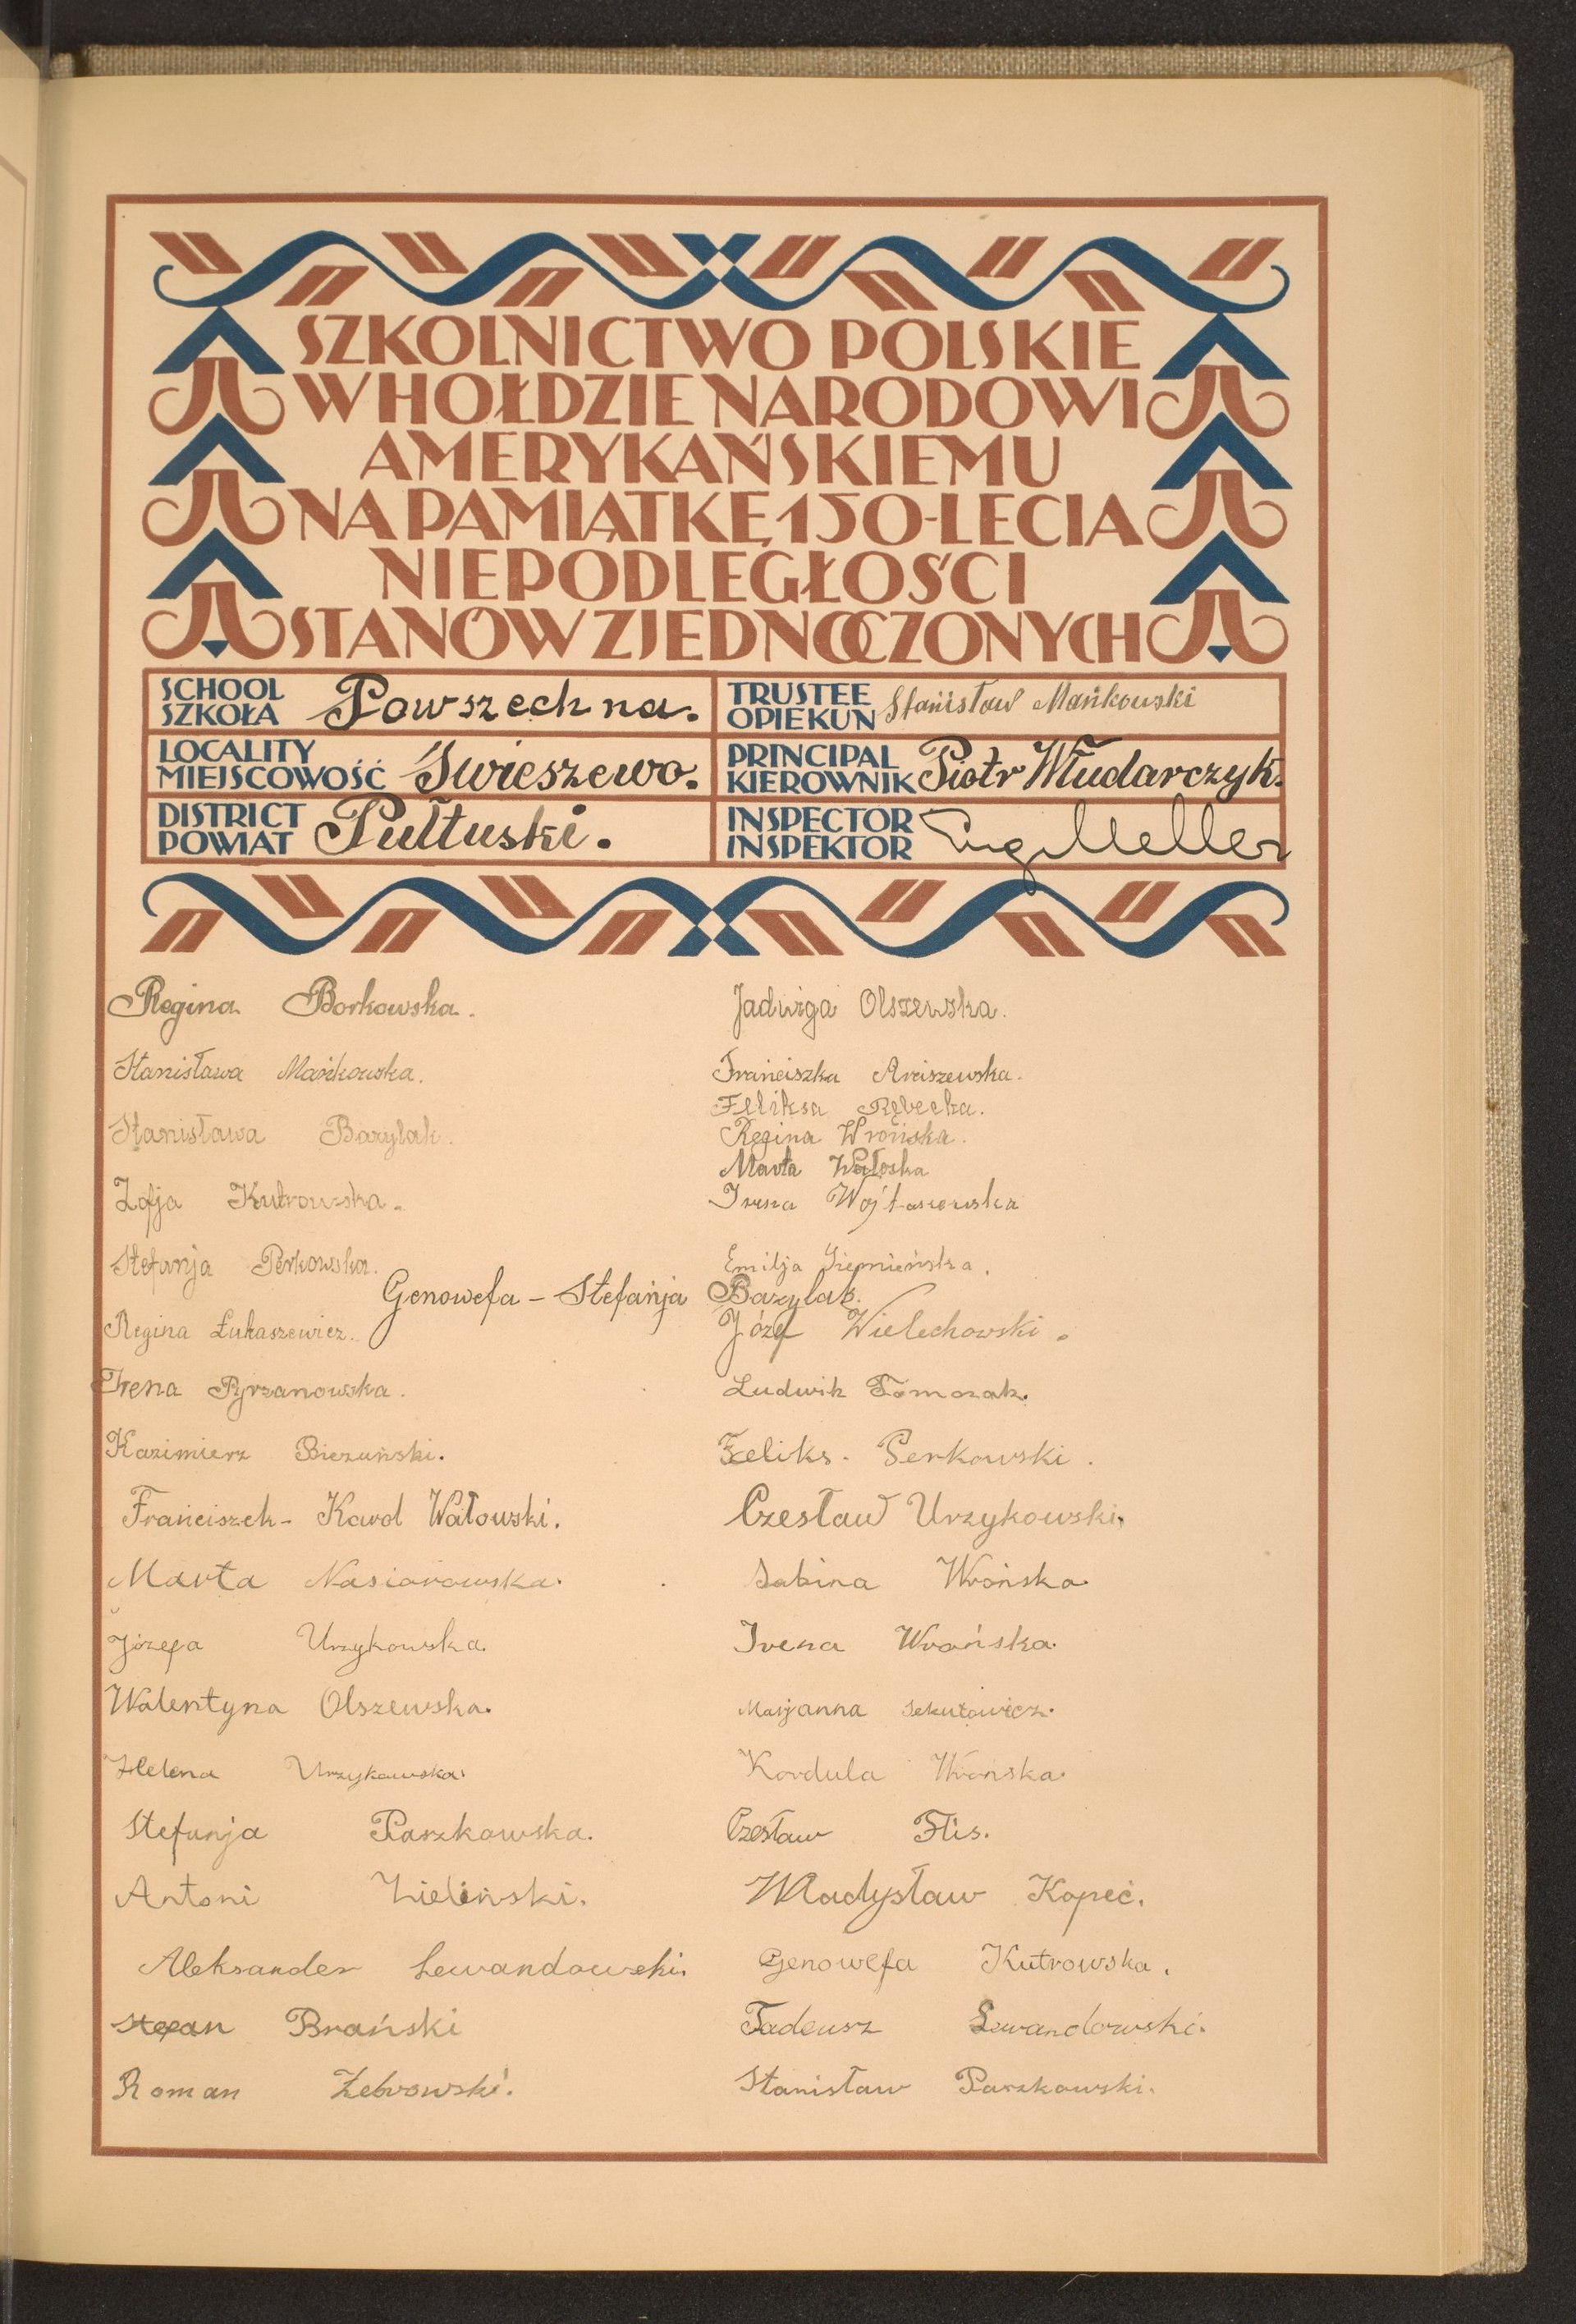 SZKOLNICTWO POLSKIE
W HOŁDZIE NARODOWI
AMERYKAŃSKIEMU
NA PAMIĄTKĘ 150-LECIA
NIEPODLEGŁOŚCI
STANÓW ZJEDNOCZONYCH
SCHOOL
SZKOŁA
Powszechna.
TRUSTEE
OPIEKUN
Stanisław Mańkowski
LOCALITY
MIEJSCOWOŚĆ
Świeszewo.
PRINCIPAL
KIEROWNIK
Piotr Włudarczyk.
DISTRICT
POWIAT
Pułtuski.
INSPECTOR
INSPEKTOR
Meller
Regina Borkowska.
Stanisława Mańkowska.
Stanisława Bazylak.
Zofja Kutrowska.
Stefanja Perkowska.
Genowefa - Stefanja Bazylak.
Regina Łukaszewicz.
Irena Pyrzanowska.
Kazimierz Bieżuński.
Franciszek - Karol Wałowski.
Marta Nasiorowska.
Józefa Urzykowska.
Walentyna Olszewska.
Helena Urzykowska.
Stefanja Paszkowska.
Antoni Zieliński.
Aleksander Lewandowski.
Stefan Brański
Roman Żebrowski.
Jadwiga Olszewska.
Franciszka Arciszewska.
Feliksa Rębecka.
Regina Wrońska.
Marta
Irena Wojtaszewska
Emilja
Józef Wielechowski.
Ludwik Tomczak.
Feliks. Perkowski.
Czesław Urzykowski.
Sabina Wrońska.
Irena Wrońska.
Marjanna Sekutowicz.
Kordula Wrońska.
Czesław Flis.
Władysław Kopeć.
Genowefa Kutrowska.
Tadeusz Lewandowski.
Stanisław Paszkowski.